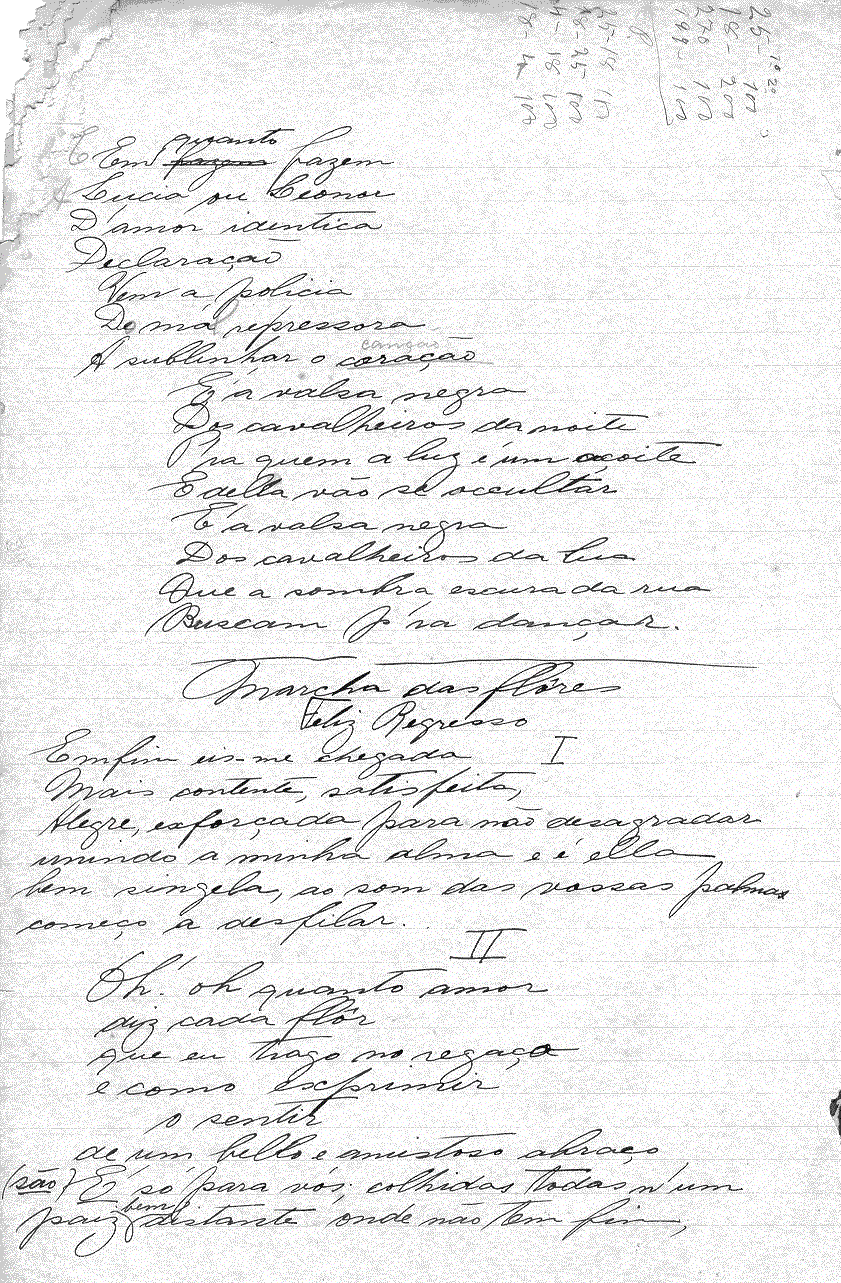 Em quanto fazem
Lucia ou Leonor
D'amor identica
Declaração
Vem a policia
De má repressora
A sublinhar o coração
canção
E' a valsa negra
Dos cavalheiros da noite
P'ra quem a luz é um açoite
E della vão se occultar
E' a valsa negra
Dos cavalheiros da lua
Que a sombra escura da rua
Buscam p'ra dançar.
Marcha das flôres
Feliz Regresso
I
Emfim eis-me chegada
Mais contente, satisfeita,
Alegre, esforçada para não desagradar
unindo a minha alma e é ella
bem singela, ao som das vossas palmas
começo a desfilar...
II
Oh! oh quanto amor
diz cada flôr
que eu trago no regaço
e como exprimir
o sentir
de um bello e amistoso abraço
(são) E' só para vós, colhidas todas n'um
paiz bem distante onde não tem fim,